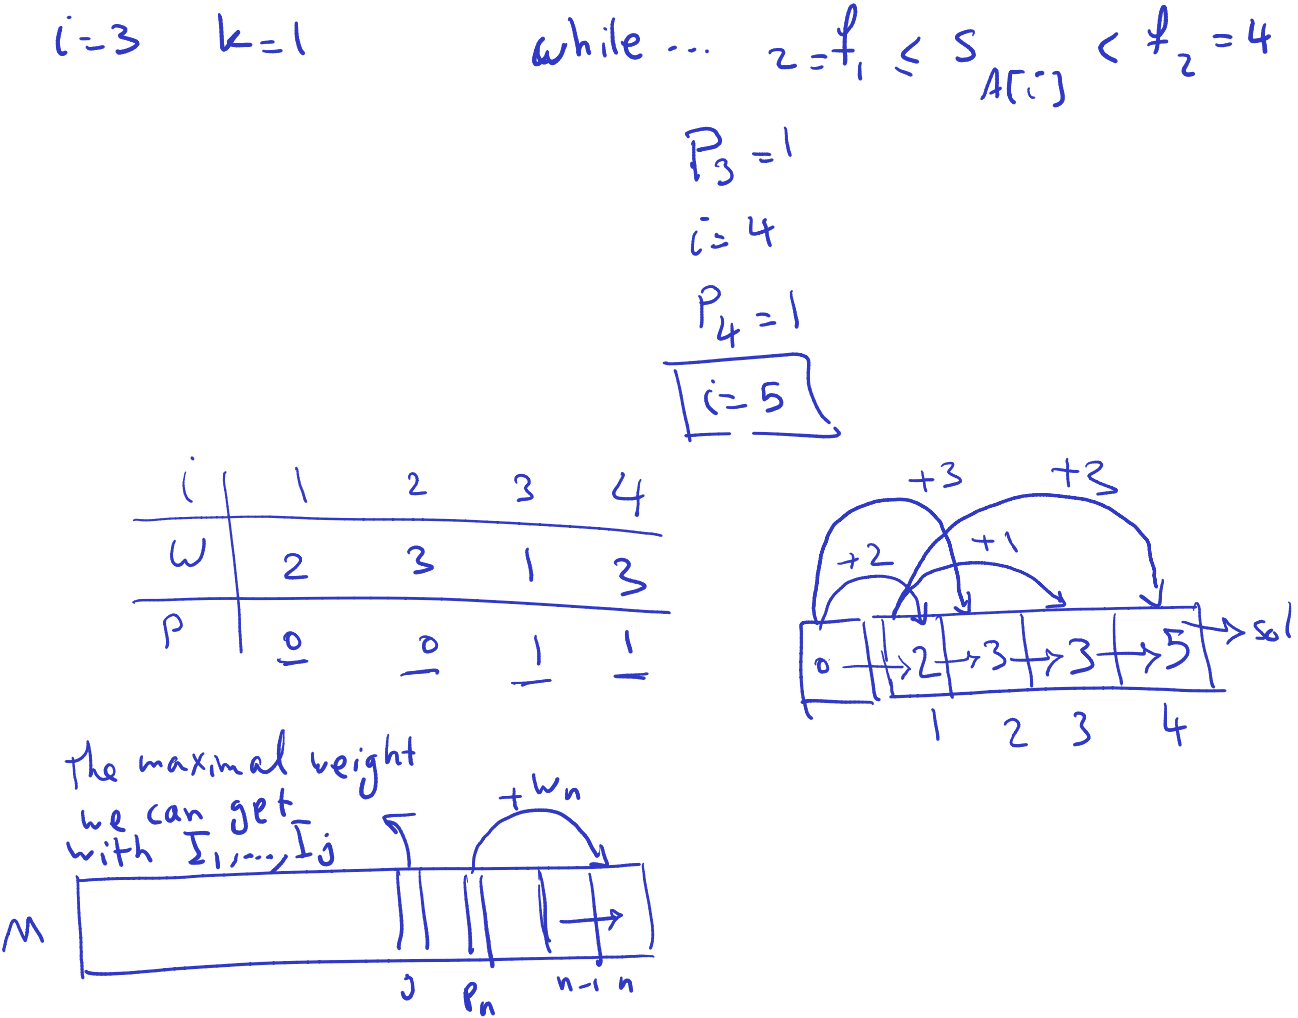 i=3 k=1 while ... 2=f₁ ≤ S_A[i] < f₂ = 4
P₃ = 1
i = 4
P₄ = 1
i = 5
i 1 2 3 4
W 2 3 1 3
P 0 0 1 1
+3 +3
+2 +1
0 2 3 3 5 sol
1 2 3 4
The maximal weight
we can get
with I₁,...,Ij
+Wn
M
j Pn n-1 n